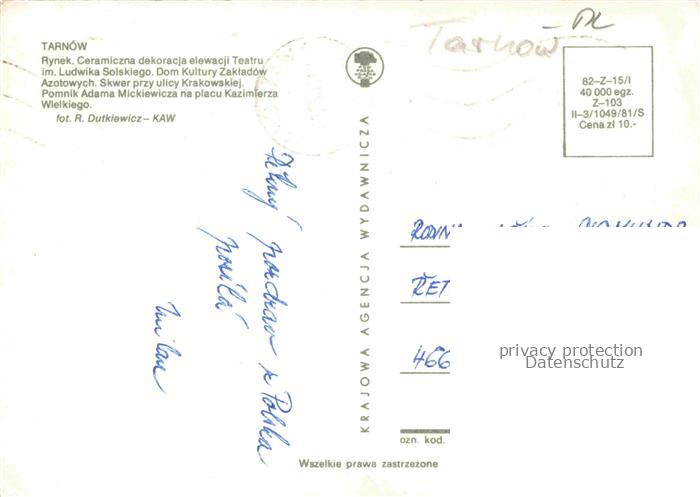 TARNÓW
Rynek. Ceramiczna dekoracja elewacji Teatru
im. Ludwika Solskiego. Dom Kultury Zakładów
Azotowych. Skwer przy ulicy Krakowskiej.
Pomnik Adama Mickiewicza na placu Kazimierza
Wielkiego.
fot. R. Dutkiewicz – KAW
Tarnow – PL
82–Z–15/I
40 000 egz.
Z–103
II–3/1049/81/S
Cena zł 10.-
pozdrav z Polska
posílá
Milan
KRAJOWA AGENCJA WYDAWNICZA
466
privacy protection
Datenschutz
ozn. kod.
Wszelkie prawa zastrzeżone